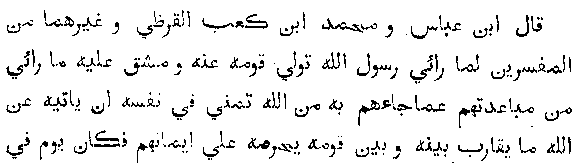 قال ابن عباس و محمد ابن كعب القرظي و غيرهما من
المفسرين لما رائي رسول الله تولي قومه عنه و مشق عليه ما رائي
من مباعدتهم عماجاءهم به من الله تمني في نفسه ان ياتيه عن
الله ما يقارب بينه و بين قومه يحرصه علي ايمانهم فكان يوم في